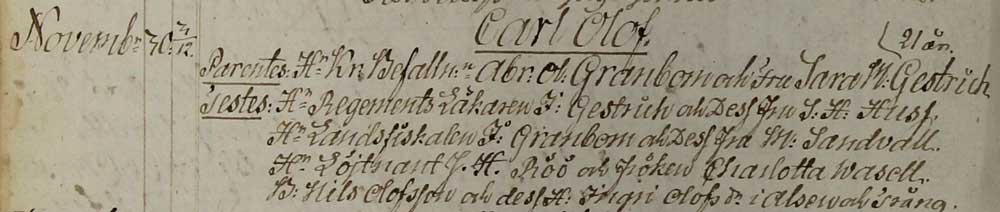 Carl Olof.
Novembr 30. 3/12. 21 år.
Parentes: Hr Kr. Befalln:n Abr. Ol: Granbom och Fru Sara M: Gestrich
Testes: Hr Regements Läkaren J: Gestrich och Dess Fru S: H: Huss,
Hr Landsfiskalen J: Granbom och Dess Fru M: Sandvall.
Hr Löjtnant J. H. och Fröken Charlotta Wasell.
B: Nils Olofsson och dess H: Ingri Olofs dr i Alsen och Trång.